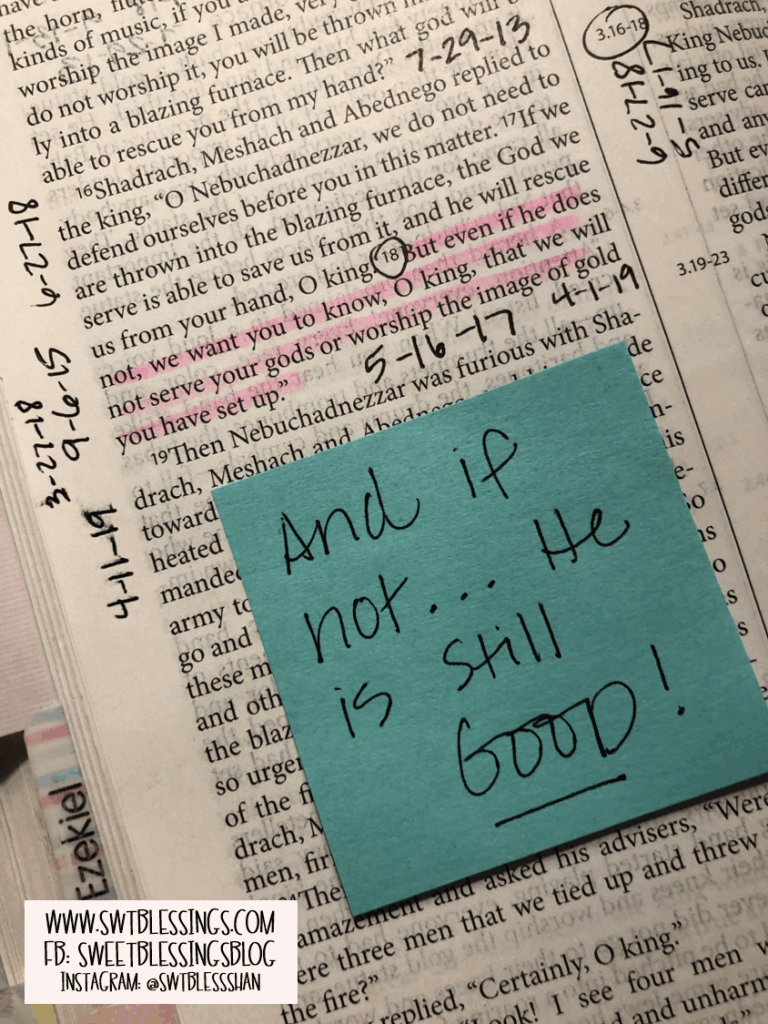 the horn, flu
kinds of music, if you a
worship the image I made, very
do not worship it, you will be thrown
ly into a blazing furnace. Then what god will b
able to rescue you from my hand?” 7-29-13
¹⁶Shadrach, Meshach and Abednego replied to
the king, “O Nebuchadnezzar, we do not need to
defend ourselves before you in this matter. ¹⁷If we
are thrown into the blazing furnace, the God we
serve is able to save us from it, and he will rescue
us from your hand, O king. ¹⁸But even if he does
not, we want you to know, O king, that we will
not serve your gods or worship the image of gold
you have set up.” 5-16-17 4-1-19
¹⁹Then Nebuchadnezzar was furious with Sha-
drach, Meshach and Abedne
toward
heated
mande
army to
go and
these m
and oth
the blaz
so urge
of the f
drach, M
men, fir
The
amazement and asked his advisers, “Were
ere three men that we tied up and threw
the fire?”
replied, “Certainly, O king.”
ook! I see four men w
d and unharm
6-27-18
9-6-15
3-27-18
4-11-19
3.16-18
5-16-17
6-27-18
3.19-23
Shadrach,
King Nebuc
ing to us. I
serve can
and any
But ev
differ
gods
And if
not... He
is still
GOOD!
Ezekiel
WWW.SWTBLESSINGS.COM
FB: SWEETBLESSINGSBLOG
INSTAGRAM: @SWTBLESSSHAN